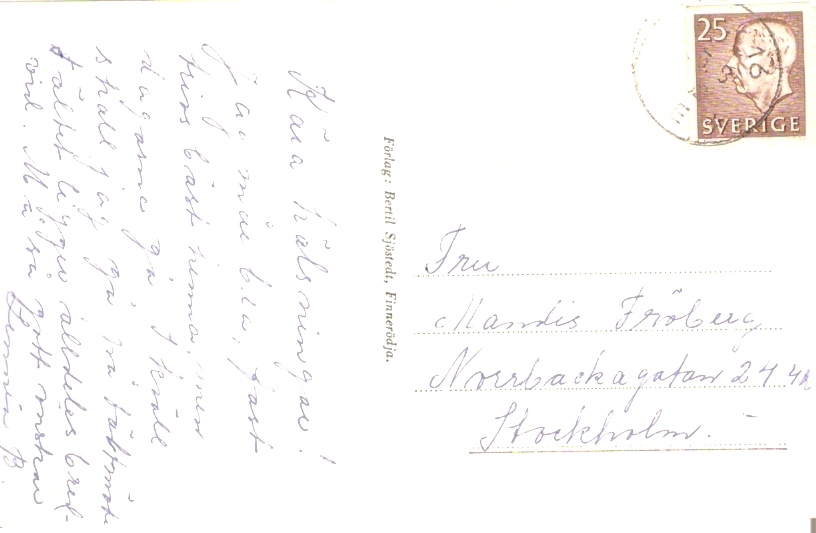 Kära hälsningar!
Jag mår bra, fast
finns bäst hemma, men
dagarna gå. I kväll
skall jag gå på tältmöte
Tältet ligger alldeles bred-
vid. Må så gott önskar
B.
Förlag: Bertil Sjöstedt, Finnerödja.
25
SVERIGE
Fru
Mandis Fröberg
Norrbackagatan 24 4tr
Stockholm.